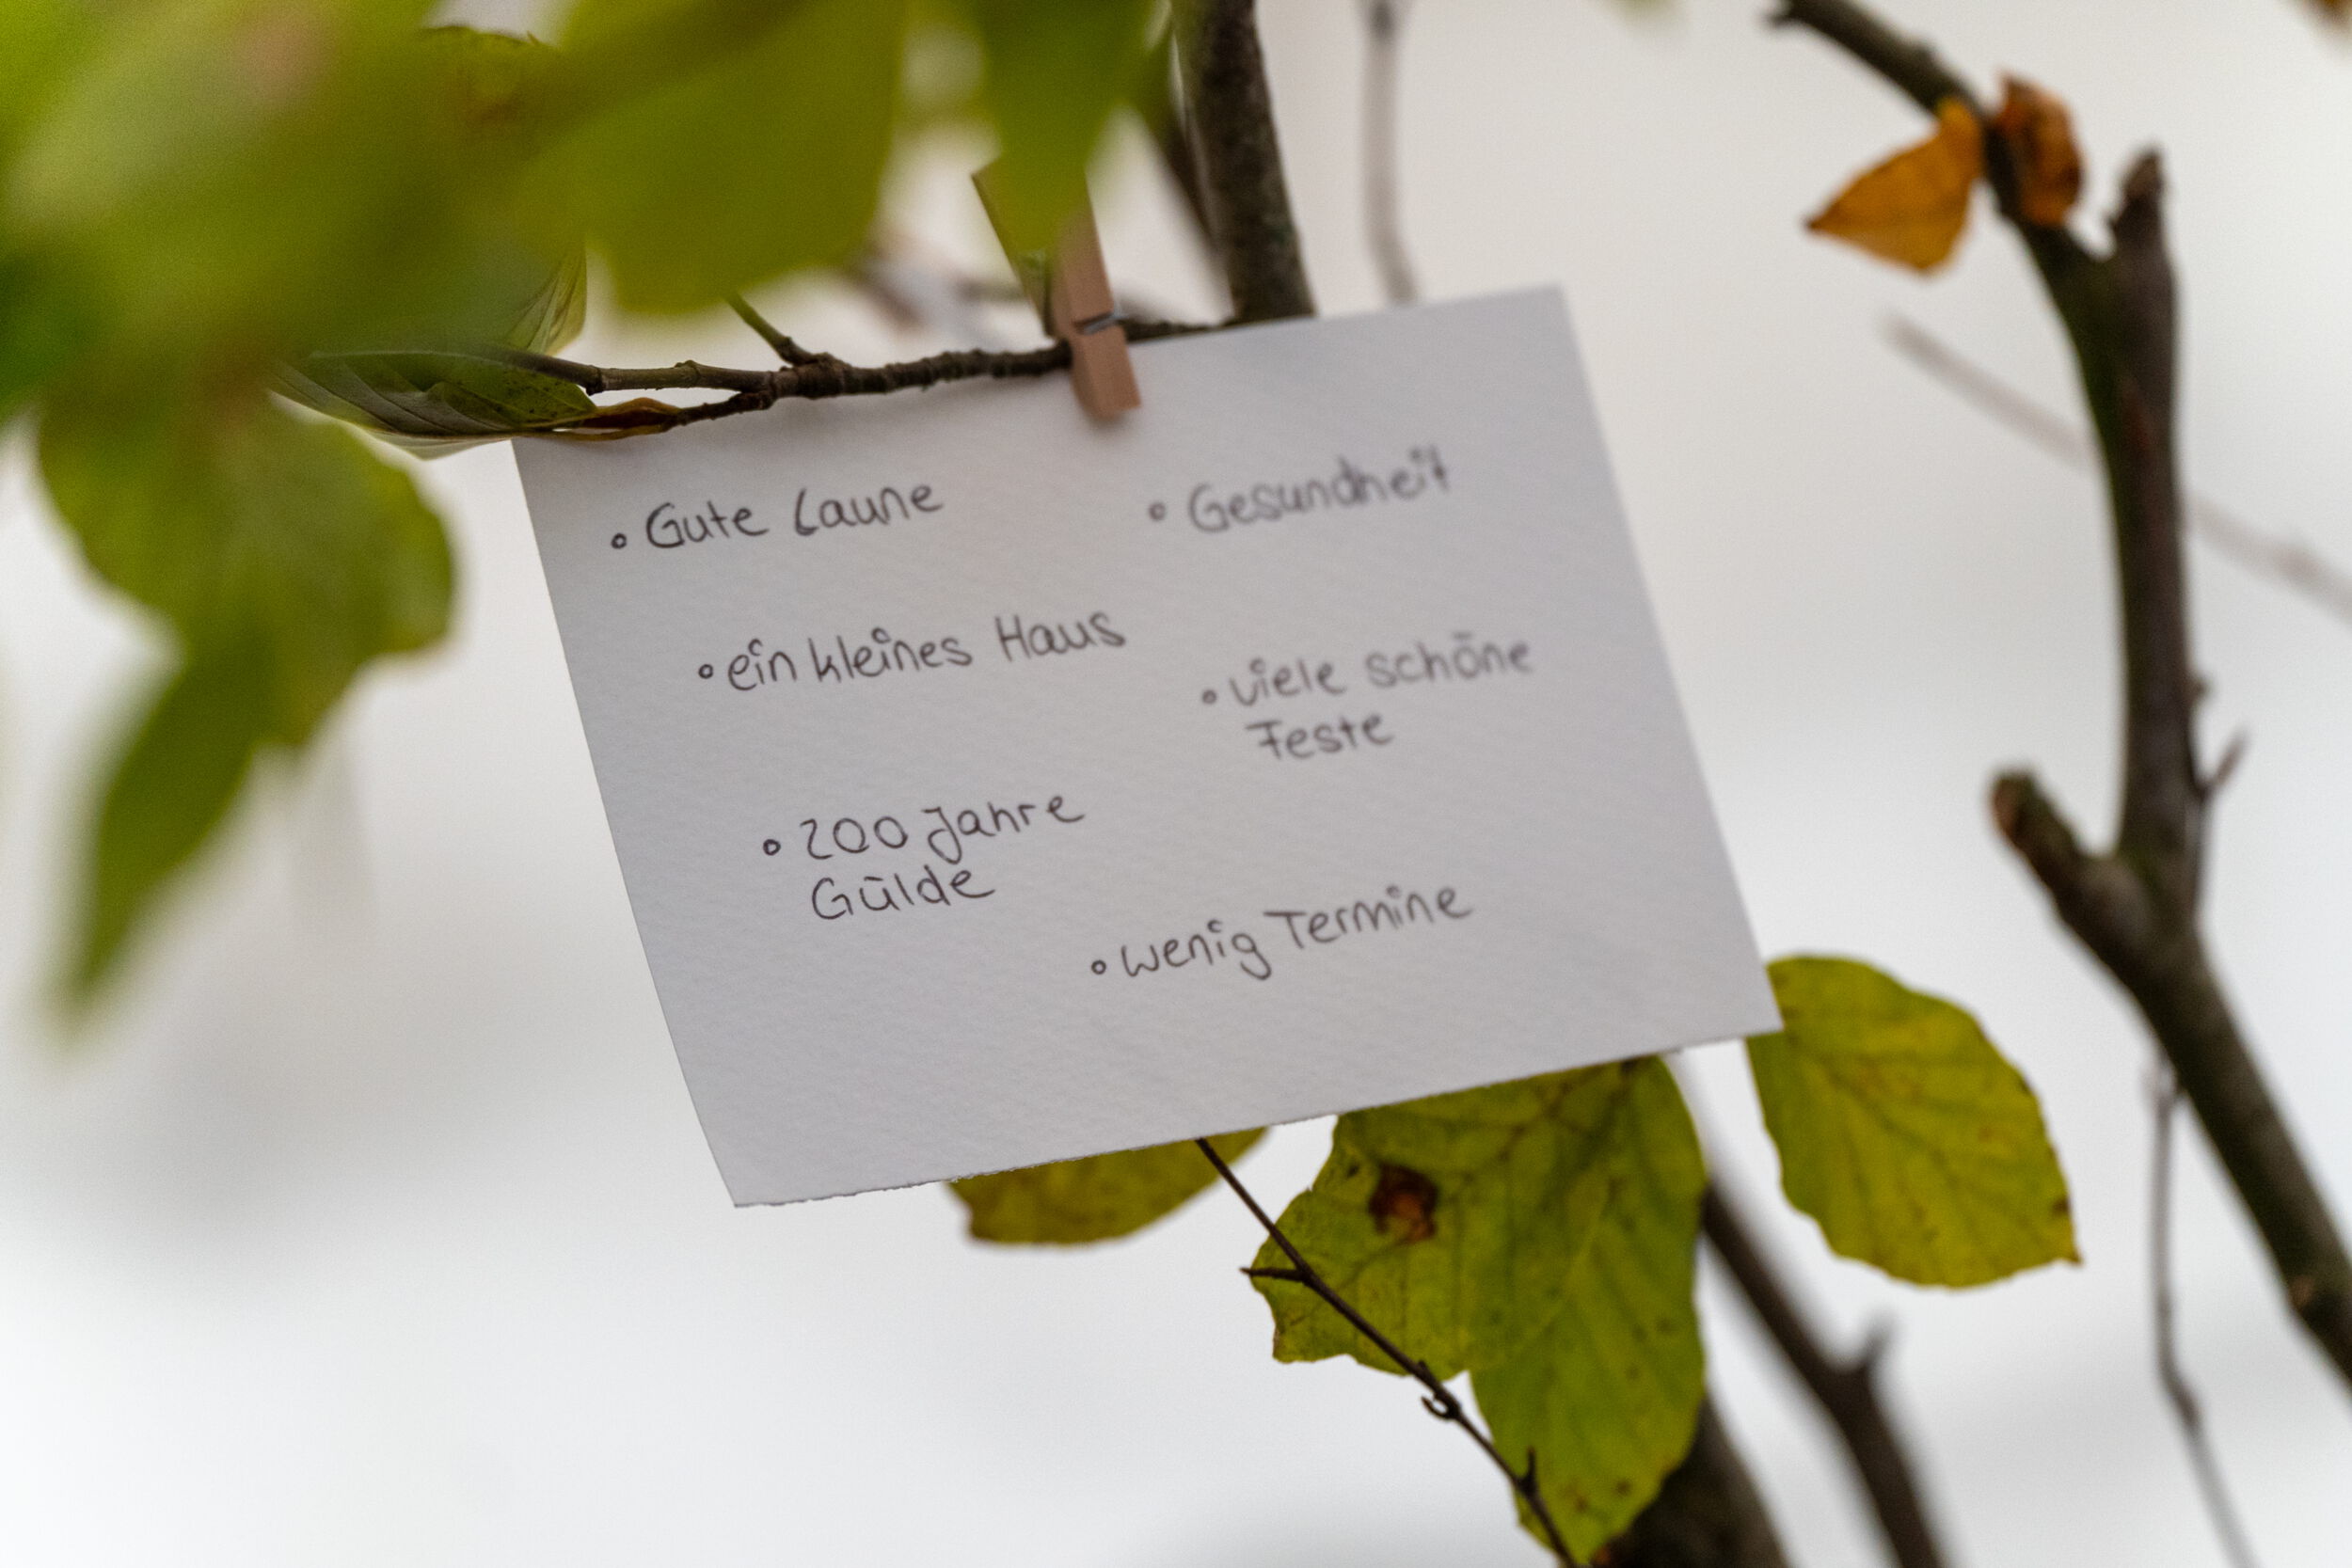 ° Gute Laune
° Gesundheit
° ein kleines Haus
° viele schöne
Feste
° 200 Jahre
Gülde
° wenig Termine